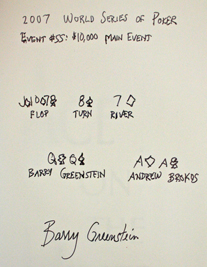 2007 WORLD SERIES OF POKER
EVENT #55: $10,000 MAIN EVENT
8♠ 7♢
FLOP TURN RIVER
Q♣ Q♠ A♢ A♣
BARRY GREENSTEIN ANDREW BROKOS
Barry Greenstein